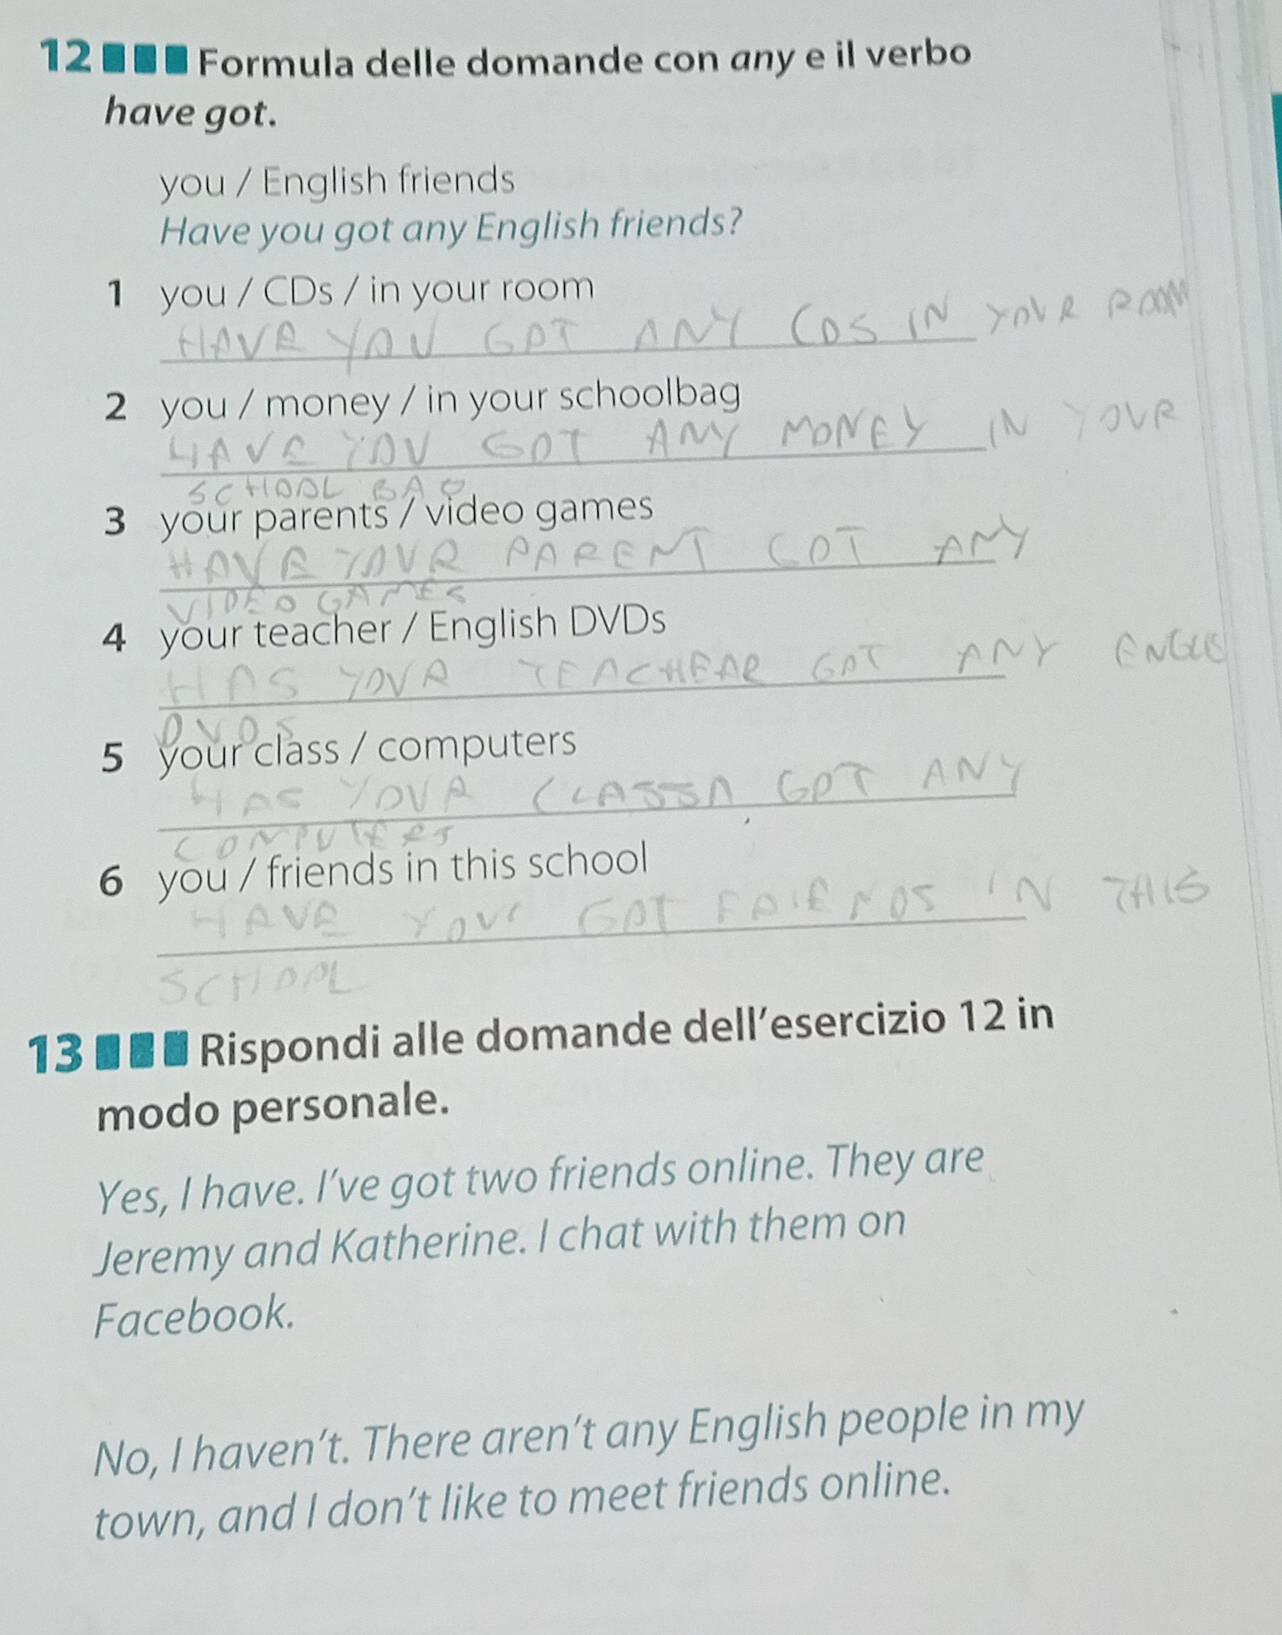 12 Formula delle domande con any e il verbo
have got.
you / English friends
Have you got any English friends?
1 you / CDs / in your room
HAVE YOU GOT ANY CDS IN YOUR ROOM
2 you / money / in your schoolbag
HAVE YOU GOT ANY MONEY IN YOUR
SCHOOL BAG
3 your parents / video games
HAVE YOUR PARENT GOT ANY
VIDEO GAMES
4 your teacher / English DVDs
HAS YOUR TEACHEAR GOT ANY ENGLIS
DVDS
5 your class / computers
HAS YOUR GOT ANY
6 you / friends in this school
HAVE GOT FRIENDS IN THIS
SCHOOL
13 Rispondi alle domande dell'esercizio 12 in
modo personale.
Yes, I have. I've got two friends online. They are
Jeremy and Katherine. I chat with them on
Facebook.
No, I haven't. There aren't any English people in my
town, and I don't like to meet friends online.